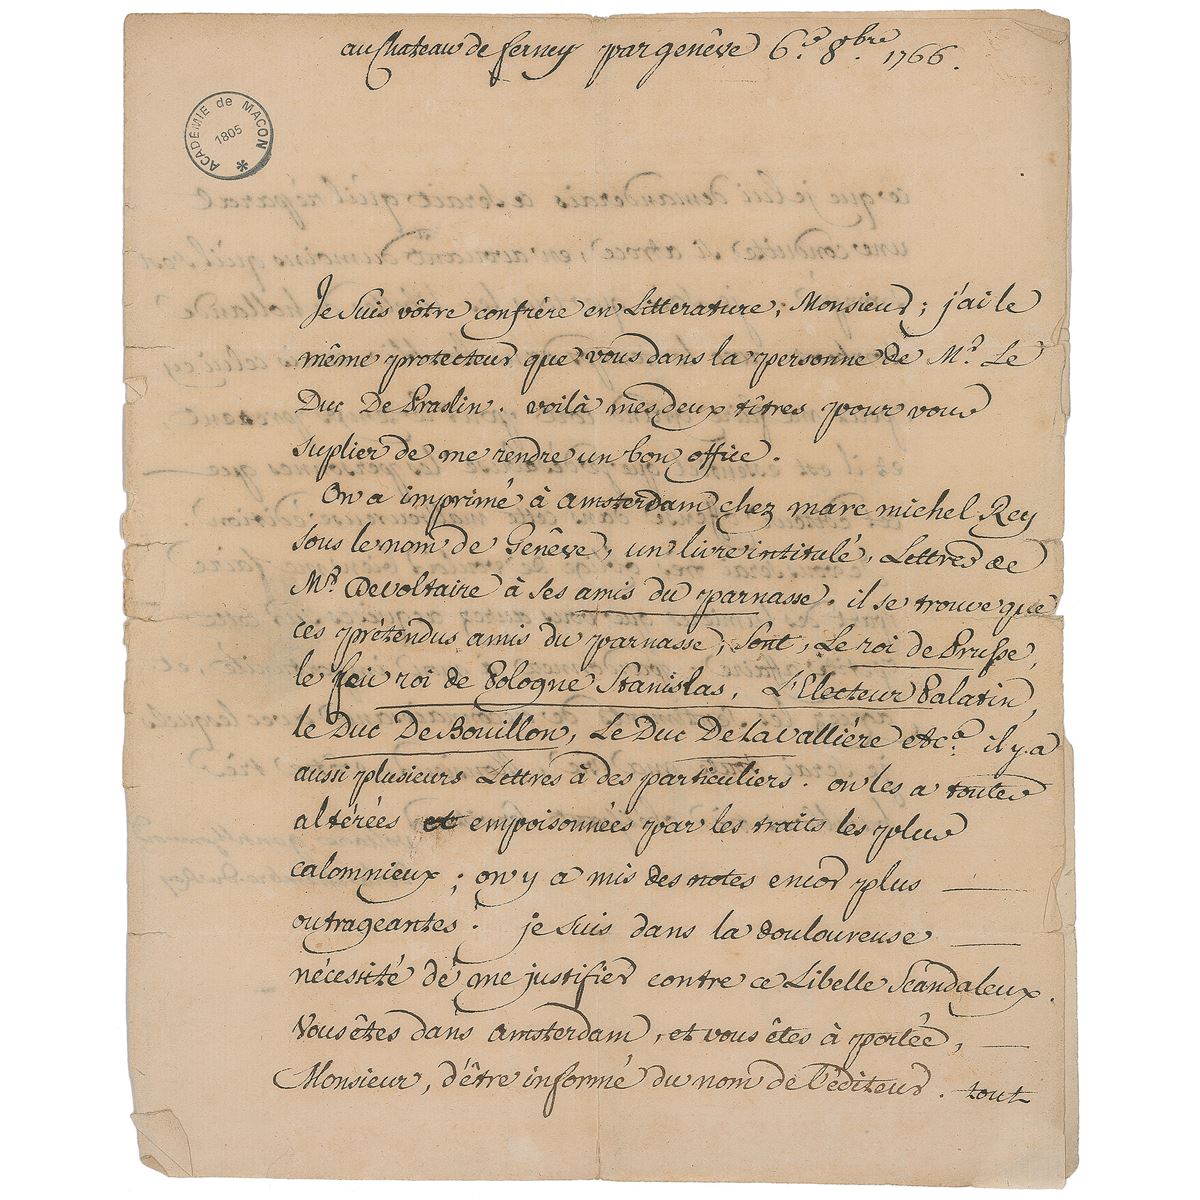 au Chateau de ferney par genêve 6.e 8.bre 1766.
ACADÉMIE de MACON
1805
Je suis vôtre confrère en Litterature, Monsieur; j'ai le
même protecteur que vous dans la personne de Mr. Le
Duc De Praslin. voilà mes deux tîtres pour vous
suplier de me rendre un bon office.
On a imprimé à amsterdam chez marc michel Rey
sous le nom de Genêve, un livre intitulé, Lettres de
Mr. De Voltaire à ses amis du parnasse. il se trouve que
ces prétendus amis du parnasse, sont, Le roi de Prusse,
le feu roi de Pologne Stanislas, L'Electeur Palatin,
le Duc De Bouillon, Le Duc De la Valliére etc.a il y a
aussi plusieurs Lettres à des particuliers. on les a toutes
altérées et empoisonnées par les traits les plus
calomnieux; on y a mis des notes encor plus
outrageantes. je suis dans la douloureuse
nécessité de me justifier contre ce Libelle Scandaleux.
Vous êtes dans amsterdam, et vous êtes à portée,
Monsieur, d'être informé du nom de l'éditeur. tout